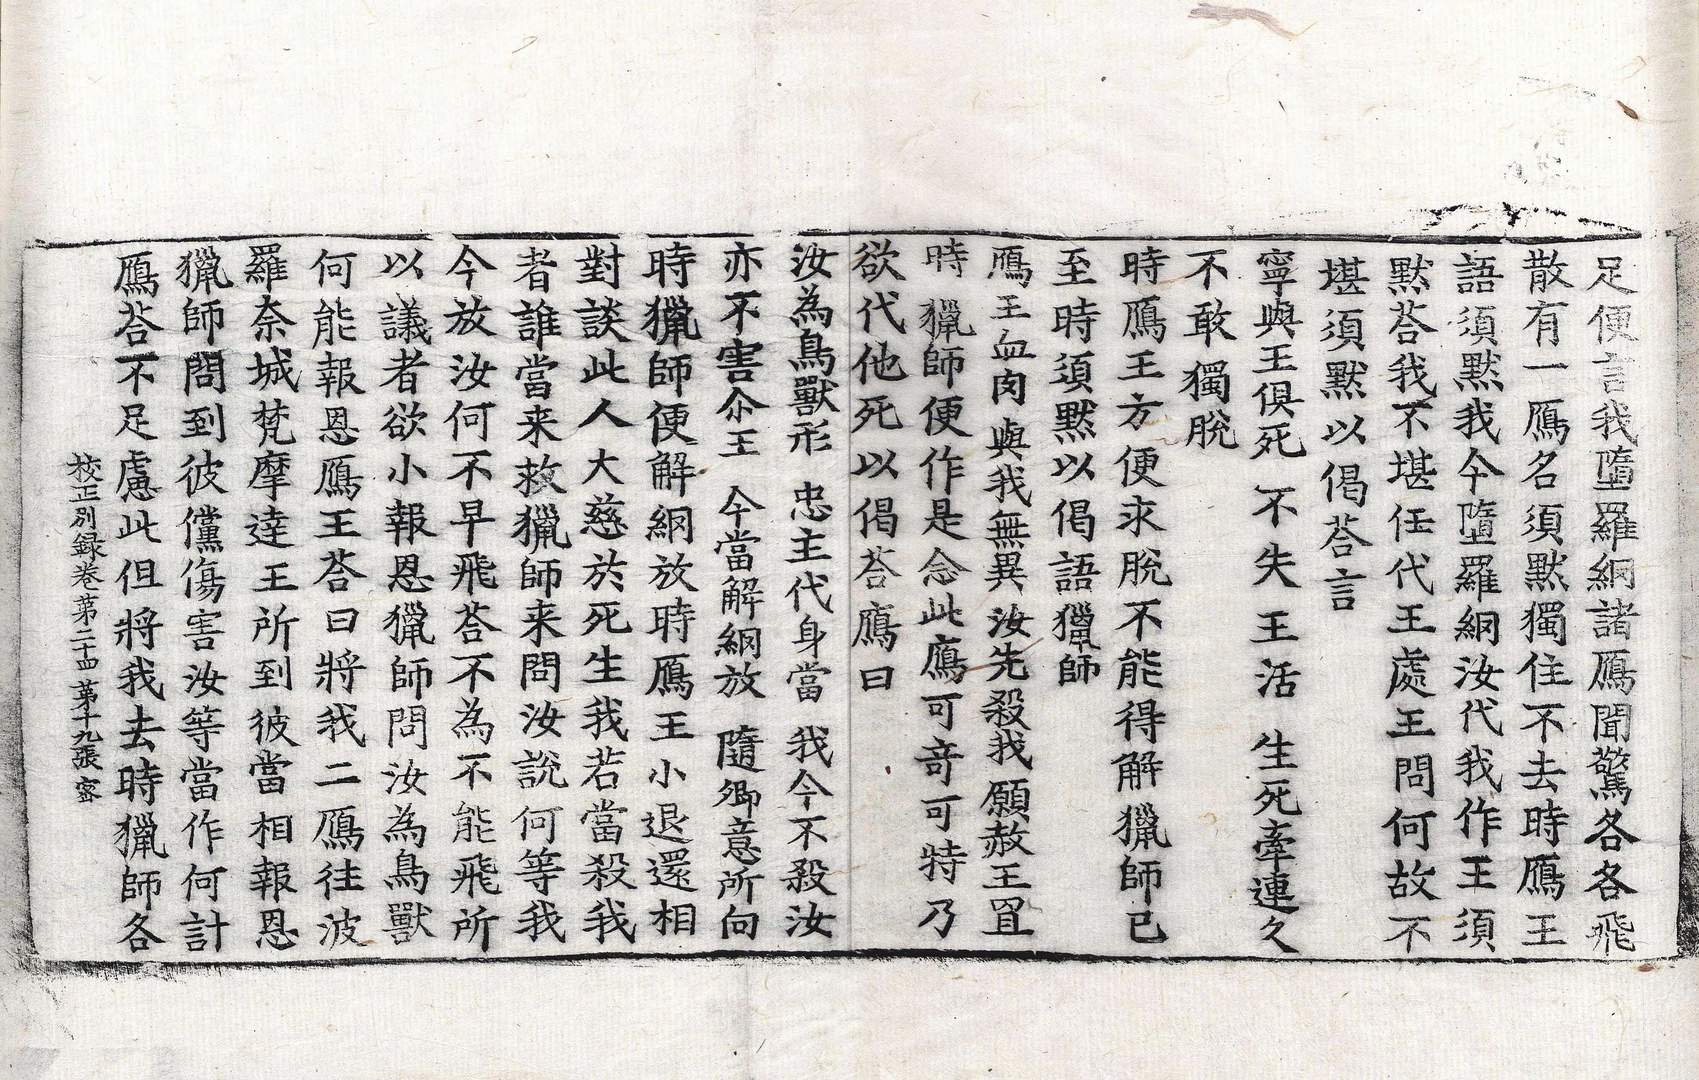 足便言我墮羅網諸鴈聞驚各各飛
散有一鴈名須默獨住不去時鴈王
語須默我今墮羅網汝代我作王須
默荅我不堪任代王處王問何故不
堪須默以偈荅言
寧與王俱死 不失王活 生死牽連久
不敢獨脫
時鴈王方便求脫不能得解獵師已
至時須默以偈語獵師
鴈王血肉與我無異汝先殺我願赦王罝
時獵師便作是念此鴈可奇可特乃
欲代他死以偈荅鴈曰
汝為鳥獸形 忠主代身當 我今不殺汝
亦不害尒王 今當解網放 隨卿意所向
時獵師便解網放時鴈王小退還相
對談此人大慈於死生我若當殺我
者誰當来救獵師来問汝說何等我
今放汝何不早飛荅不為不能飛所
以議者欲小報恩獵師問汝為鳥獸
何能報恩鴈王荅曰將我二鴈往波
羅奈城梵摩達王所到彼當相報恩
獵師問到彼儻傷害汝等當作何計
鴈荅不足慮此但將我去時獵師各
校正別録卷第二十四 第十九張 密